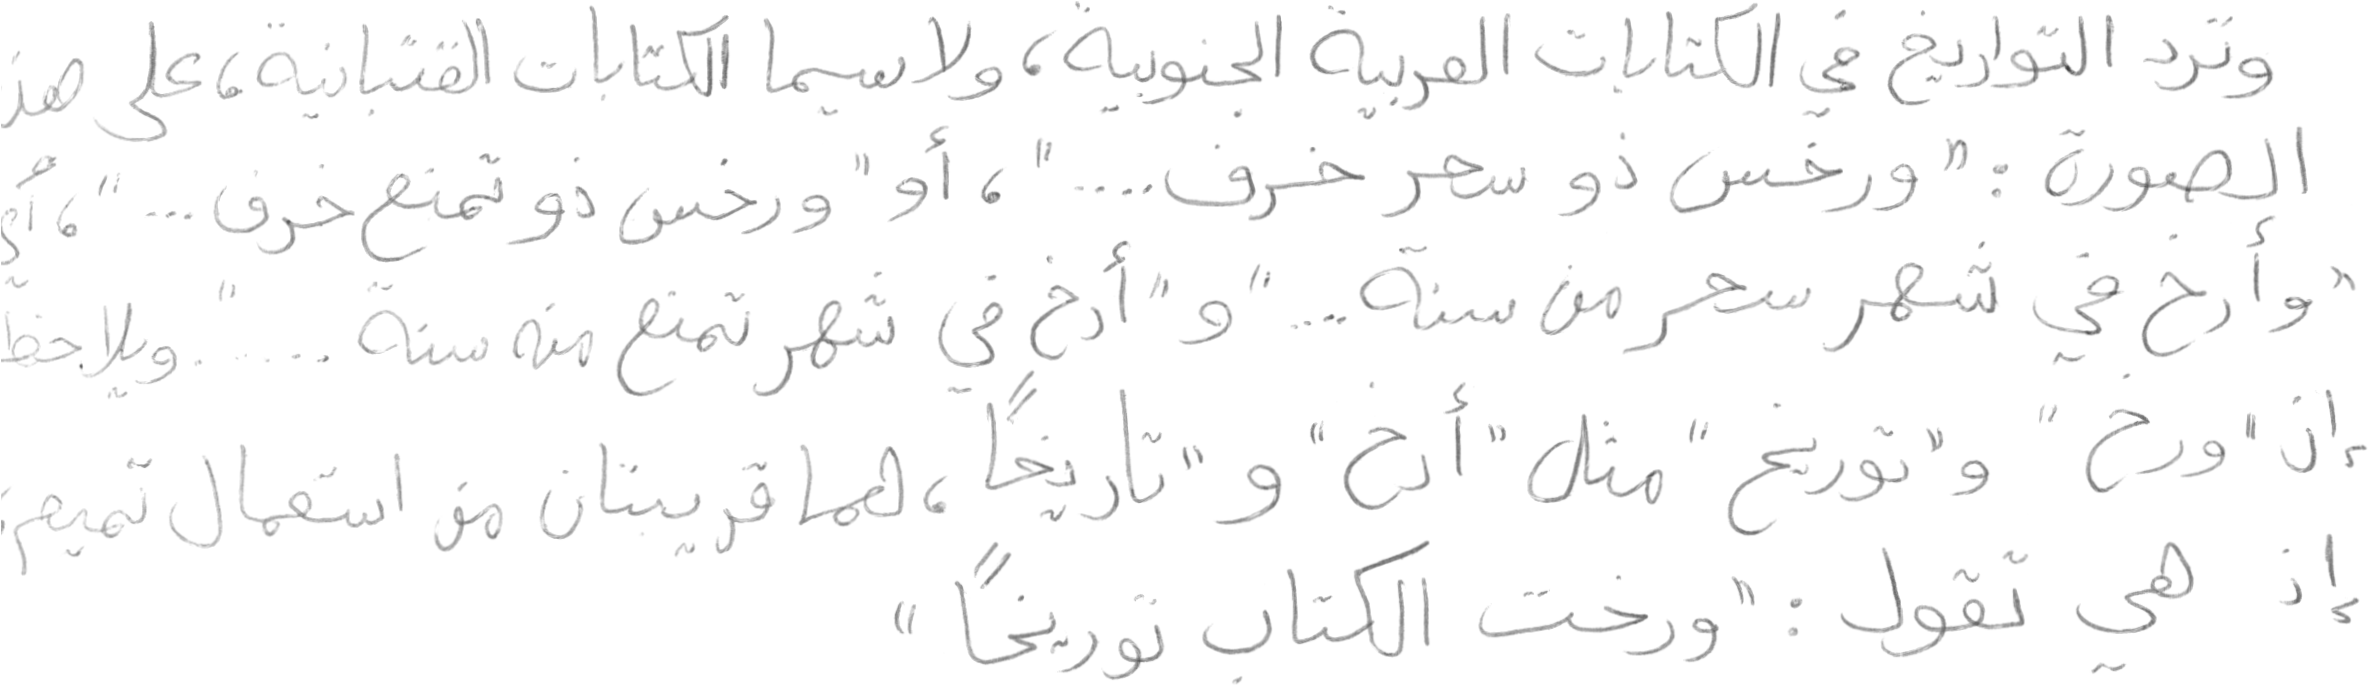 وترد التواريخ في الكتابات العربية الجنوبية، ولاسيما الكتابات القتبانية، على هذ
الصورة : "ورخس ذو سحر خرف...."، أو "ورخس ذو تمنع خرف ..."، أي
"وأرخ في شهر سحر من سنة...." و"أرخ في شهر تمنع منه سنة ......". ويلاحظ
إن "ورخ" و"توريخ" مثل "أرخ" و"تاريخًا، لهما قريبتان من استعمال تميم،
إذ هي تقول : "ورخت الكتاب توريخًا"